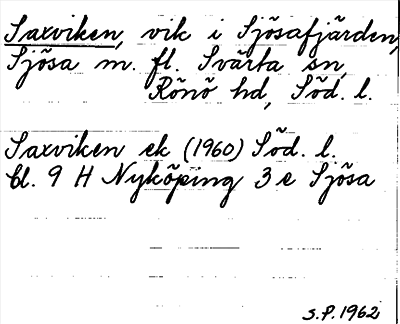 Saxviken, vik i Sjösafjärden,
Sjösa m. fl. Svärta sn,
Rönö hd, Söd. l.
Saxviken ek (1960) Söd. l.
bl. 9 H Nyköping 3 e Sjösa
S.P. 1962